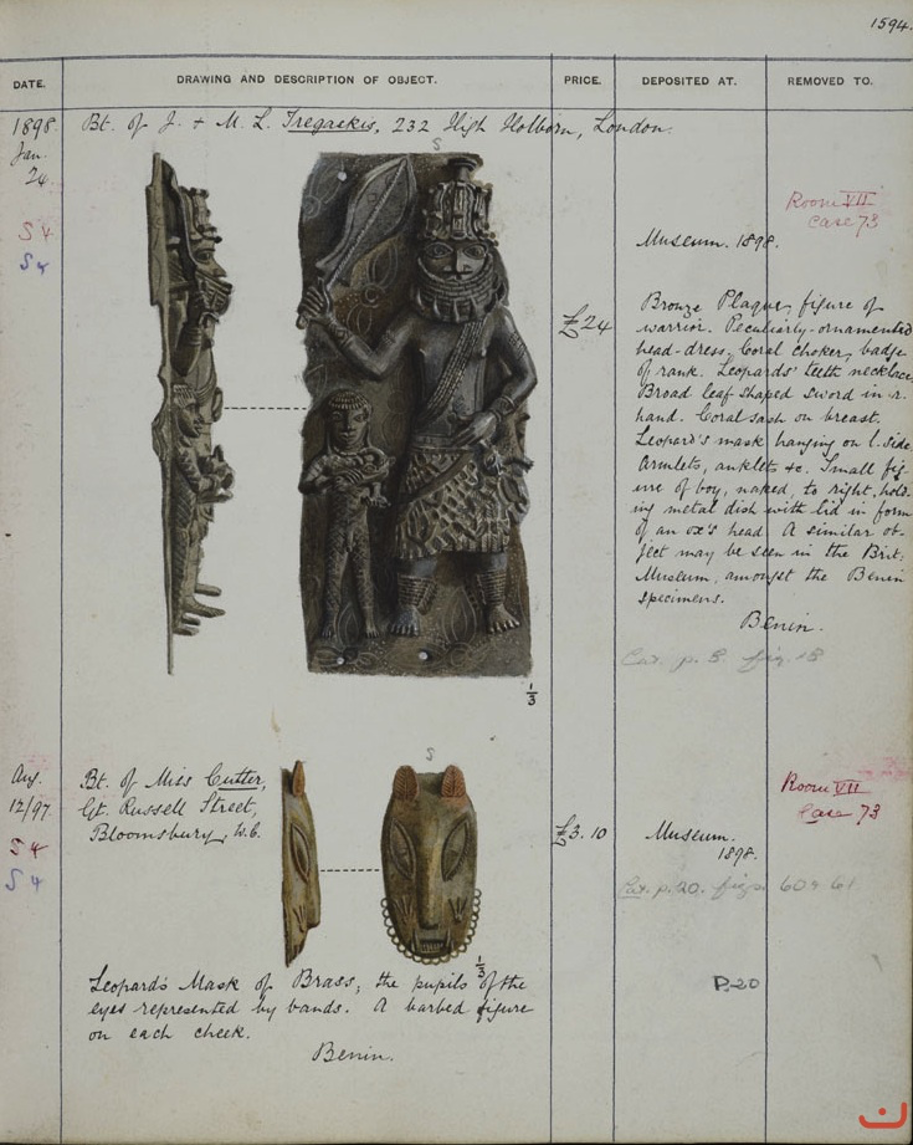 1594.
DATE.
DRAWING AND DESCRIPTION OF OBJECT.
PRICE.
DEPOSITED AT.
REMOVED TO.
1898.
Jan.
24
Bt. of J. + M. L. Tregaskis, 232 High Holborn, London.
S
S 4
S 4
Room VII
Case 73
Museum. 1898.
£24
Bronze Plaque, figure of
warrior. Peculiarly-ornamented
head-dress. Coral choker, badge
of rank. Leopards' teeth necklace
Broad leaf shaped sword in r.
hand. Coral sash on breast.
Leopard's mask hanging on l. side
Armlets, anklets &c. Small fig-
ure of boy, naked, to right, hold-
ing metal dish with lid in form
of an ox's head. A similar ob-
ject may be seen in the Brit:
Museum, amongst the Benin
specimens.
Benin.
Cat. p. 8 fig. 18
1/3
Aug.
12/97
Bt. of Miss Cutter,
Gt. Russell Street,
Bloomsbury, W.C.
S
S 4
S 4
£3.10
Museum.
1898.
Room VII
Case 73
Cat. p. 20. figs. 60 & 61
1/3
P. 20
Leopard's Mask of Brass; the pupils of the
eyes represented by bands. A barbed figure
on each cheek.
Benin.